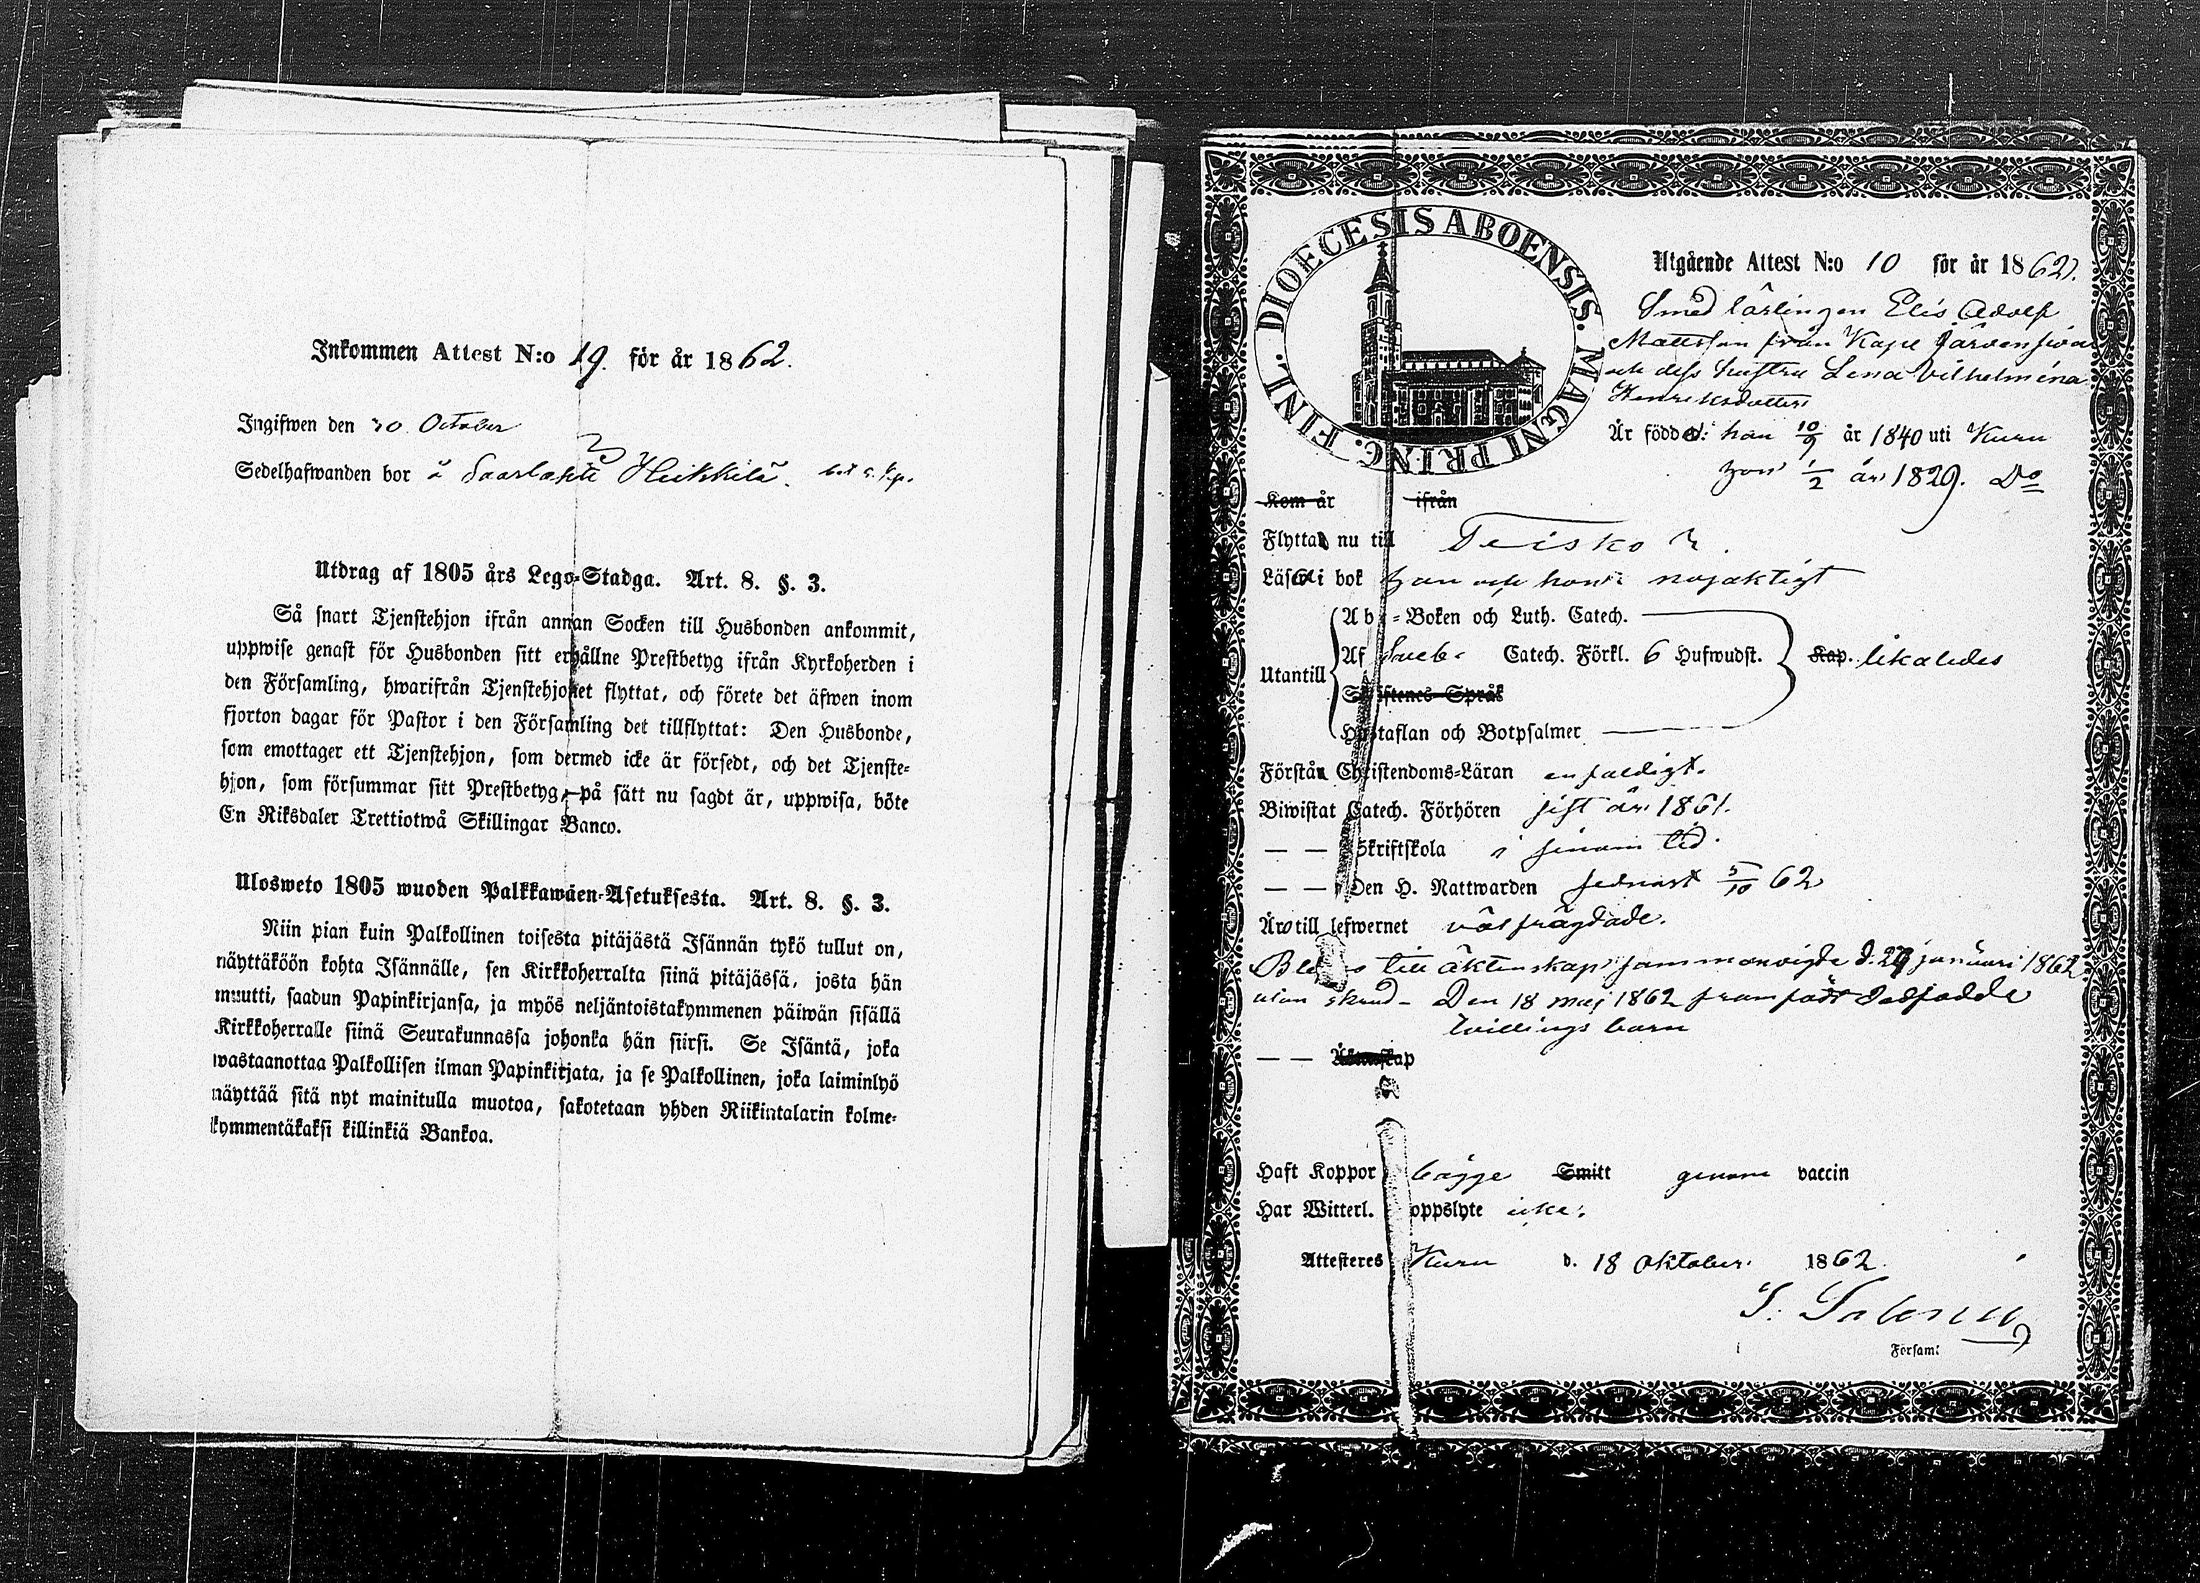 Inkommen Attest N:o 19. för år 1862.
Ingifwen den 30 October
Sedelhafwanden bor å Saarlahti Heikkilä.
Utdrag af 1805 års Lego-Stadga. Art. 8. §. 3.
Så snart Tjenstehjon ifrån annan Socken till Husbonden ankommit,
uppwise genast för Husbonden sitt erhållne Prestbetyg ifrån Kyrkoherden i
den Församling, hwarifrån Tjenstehjonet flyttat, och förete det äfwen inom
fjorton dagar för Pastor i den Församling det tillflyttat: Den Husbonde,
som emottager ett Tjenstehjon, som dermed icke är försedt, och det Tjenste-
hjon, som försummar sitt Prestbetyg, på sätt nu sagdt är, uppwisa, böte
En Riksdaler Trettiotwå Skillingar Banco.
Ulosweto 1805 wuoden Palkkawäen-Asetuksesta. Art. 8. §. 3.
Niin pian kuin Palkollinen toisesta pitäjästä Isännän tykö tullut on,
näyttäköön kohta Isännälle, sen Kirkkoherralta siinä pitäjässä, josta hän
muutti, saadun Papinkirjansa, ja myös neljäntoistakymmenen päiwän sisällä
Kirkkoherralle siinä Seurakunnassa johonka hän siirsi. Se Isäntä, joka
wastaanottaa Palkollisen ilman Papinkirjata, ja se Palkollinen, joka laiminlyö
näyttää sitä nyt mainitulla muotoa, sakotetaan yhden Riikintalarin kolme-
kymmentäkaksi killinkiä Bankoa.
DIOECESIS ABOENSIS. MAGNI PRINC. FINL.
Utgående Attest N:o 10 för år 1862.
Smed lärlingen Elis Adolf
Mattsson från Kapee Järvensivu
och dess hustru Lena Vilhelmina
Henriksdotter
Är födde: han 10/9 år 1840 uti Kuru
hon 1/2 år 1829. Do
Kom år ifrån
Flytta nu till Teisko
Läsa i bok han och hon: nöjaktigt
Utantill
Abc-Boken och Luth. Catech.
Af Sveb. Catech. Förkl. 6 Hufwudst. Kap. likaledes
Skriftenes Språk
Hustaflan och Botpsalmer
Förstår Christendoms-Läran enfaldigt.
Biwistat Catech. Förhören sist år 1861.
— — Skriftskola i sinom tid.
— — Den H. Nattwarden sednast 5/10 62
Äro till lefwernet väl frägdade.
Blefvo till äktenskap sammanvigde d. 29 januari 1862
utan skrud – Den 18 maj 1862 framfödt dödfödde
tvillings barn
— — Äktenskap
Haft Koppor bägge Smitt genom vaccin
Har Witterl. Koppslyte icke:
Attesteres Kuru d. 18 oktober 1862.
Församl